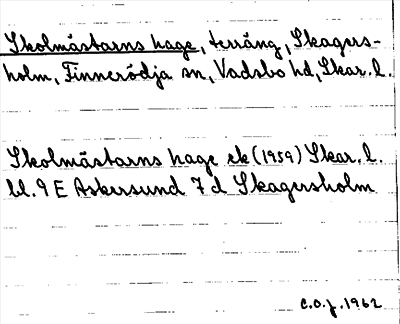 Skolmästarns hage, terräng, Skagers-
holm, Finnerödja sn, Vadsbo hd, Skar. l.
Skolmästarns hage ek (1959) Skar. l.
bl. 9 E Askersund 7 d Skagersholm
C.O.J. 1962